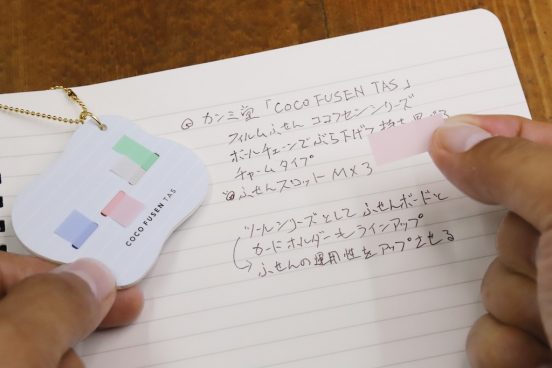 ◎ カンミ堂「COCO FUSEN TAS」
フィルムふせん ココフセンシリーズ
ボールチェーンでぶら下げて持ち
チャームタイプ
ふせんスロット M×3
ツールシリーズとして ふせんボードと
カードホルダーもラインアップ
→ ふせんの運用性をアップさせる
COCO FUSEN TAS